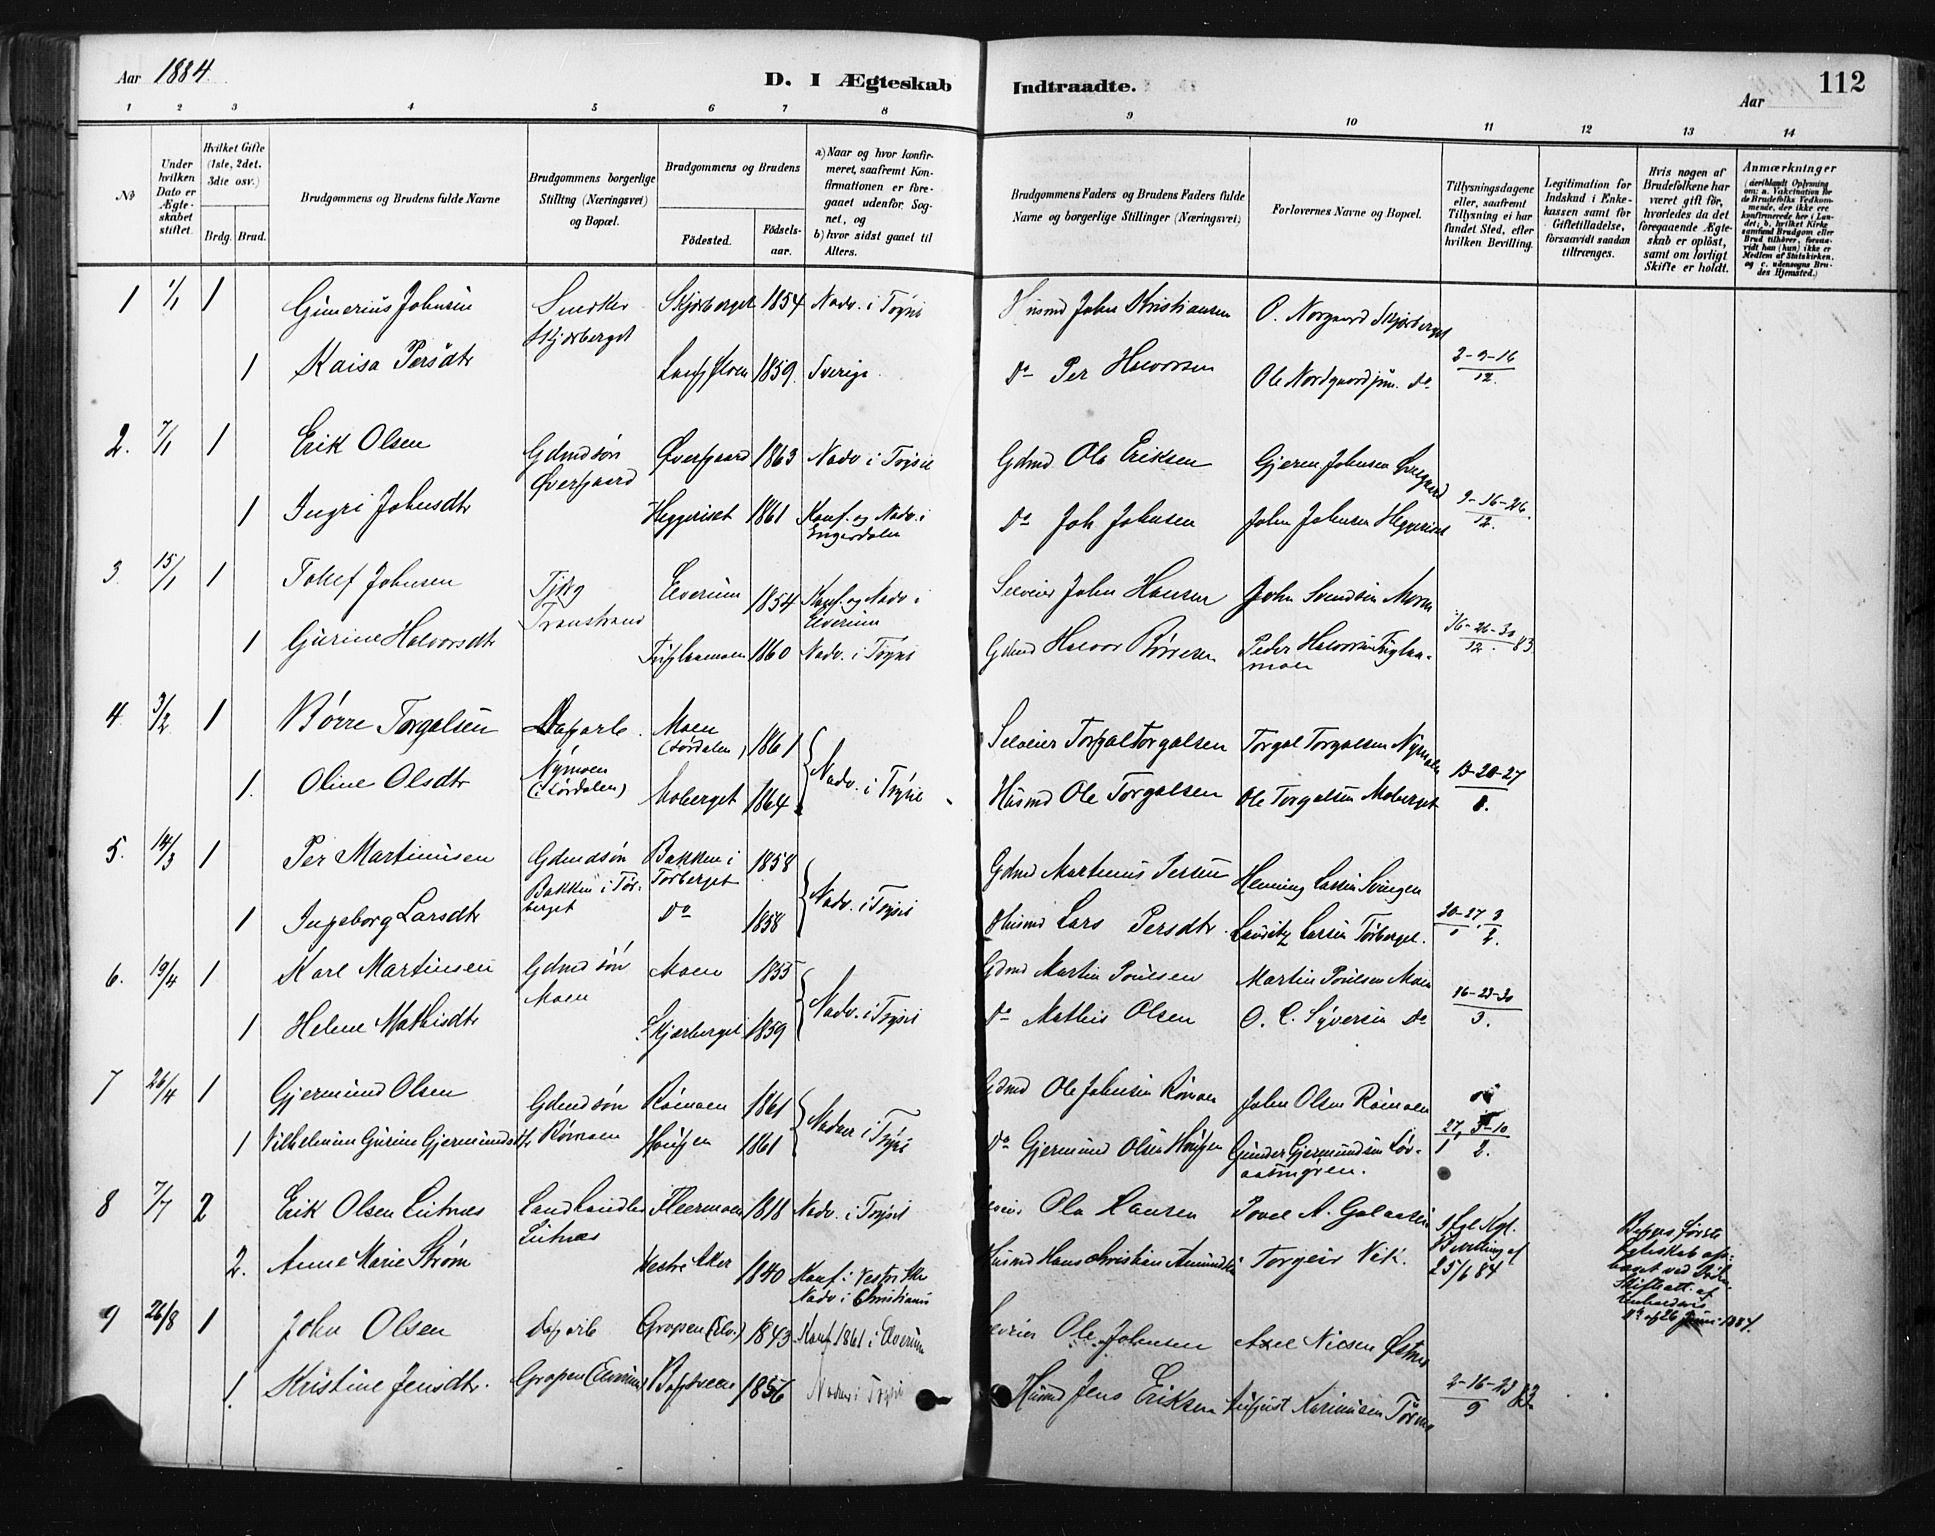 Aar 1884
D. I Ægteskab Indtraadte.
Aar
112
1 2 3 4 5 6 7 8 9 10 11 12 13 14
No
Under hvilken Dato er Ægteskabet stiftet.
Hvilket Gifte (1ste, 2det, 3die osv.)
Brdg. Brud.
Brudgommens og Brudens fulde Navne
Brudgommens borgerlige Stilling (Næringsvei) og Bopæl.
Brudgommens og Brudens
Fødested.
Fødselsaar.
a) Naar og hvor konfirmeret, saafremt Konfirmationen er foregaaet udenfor Sognet, og
b) hvor sidst gaaet til Alters.
Brudgommens Faders og Brudens Faders fulde Navne og borgerlige Stillinger (Næringsvei)
Forlovernes Navne og Bopæl.
Tillysningsdagene eller, saafremt Tillysning ei har fundet Sted, efter hvilken Bevilling.
Legitimation for Indskud i Enkekassen samt for Giftetilladelse, forsaavidt saadan tiltrænges.
Hvis nogen af Brudefolkene har været gift før, hvorledes da det foregaaende Ægteskab er opløst, samt om lovligt Skifte er holdt.
Anmærkninger (deriblandt Oplysning om: a. Vakcination for de Brudefolks Vedkommende, der ikke ere konfirmerede her i Landet; b. hvilket Kirkesamfund Brudgom eller Brud tilhører, forsaavidt han (hun) ikke er Medlem af Statskirken, og c. udensogns Brudes Hjemsted.)
1 1/1 1 Gunerius Johnsen Snedker Skjærberget Skjærberget 1854 Nadv. i Trysil Husmd John Kristiansen O. Norgaard Skjærberget
1 Kaisa Persdtr 1859 Sverige Do Per Halvorsen Ole Nordgaard jun. Do 2-9-16/12.
2. 7/1 1 Erik Olsen Gdmdsøn Øvergaard Øvergaard 1863 Nadv. i Trysil Gdmd Ole Eriksen Gjerm Johnsen Øvergaard
1 Ingri Johnsdtr Heggeriset 1861 Konf. og Nadv. i Engerdalen Do Joh Johnsen John Johnsen Heggeriset 9-16-26./12.
3. 15/1 1 Tollef Johnsen Elverum 1854 Konf. og Nadv. i Elverum Selveier John Hansen John Svendsen Moren
Transtrand
1 Gurine Halvorsdtr Fuglaamoen 1860 Nadv. i Trysil Gdmd Halvor Børresen Peder Halvorsen Fuglaamoen 16-26-30/12. 83.
4. 3/2 1 Børre Torgalsen Dagarb. Nymoen (i Sørdalen) Moen (Sørdalen) 1861 Nadv. i Trysil Selveier Torgal Torgalsen Torgal Torgalsen Nymoen
1. Oline Olsdtr Moberget 1864 Husmd Ole Torgalsen Ole Torgalsen Moberget 13-20-27/1.
5. 14/3 1 Per Martinusen Gdmdsøn Bakken i Tørberget Bakken i Tørberget 1858 Nadv. i Trysil Gdmd Martinus Persen Henning Larsen Svingen
1 Ingeborg Larsdtr Do 1858 Husmd Lars Persdtr. Lauritz Larsen Tørberget. 20-27/1 3/2.
6. 19/4 1 Karl Martinsen Gdmdsøn Moen Moen 1855 Nadv. i Trysil Gdmd Martin Poulsen Martin Poulsen Moen
1 Helene Mathisdtr Skjærberget 1859 Do Mathis Olsen O. C. Syversen Do 16-23-30/3.
7 26/4 1 Gjermund Olsen Gdmdsøn Rømoen Rømoen 1861 Nadver i Trysil Gdmd Ole Johnsen Rømoen John Olsen Rømoen
1 Vilhelmine Gurine Gjermundsdtr Haugen 1861 Do Gjermund Olsen Haugen Gunder Gjermundsen Løvaasmyren. 27/1 3-10/2.
8 7/7 2 Erik Olsen Lutnes Landhandler Lutnes Flermoen 1818 Nadv. i Trysil Selveier Ola Hansen Povel A. Galaasen
2. Anne Marie Strøm Vestre Aker 1840 Konf. i Vestre Aker Nadv. i Christiania Husmd Hans Christian Amundsen Torgeir Vik. Ifgl Kgl. Bevilling af 25/6 84
Begges første
9 26/8 1 John Olsen Dagarb. Gropen (Elverum) Gropen (Elv.) 1843 Konf. 1861 i Elverum Selveier Ole Johnsen Axel Nilsen Østmo
1. Kristine Jensdtr. 1856 Nadver i Trysil Husmd Jens Eriksen August Karinusen 2-16-23/9 83.